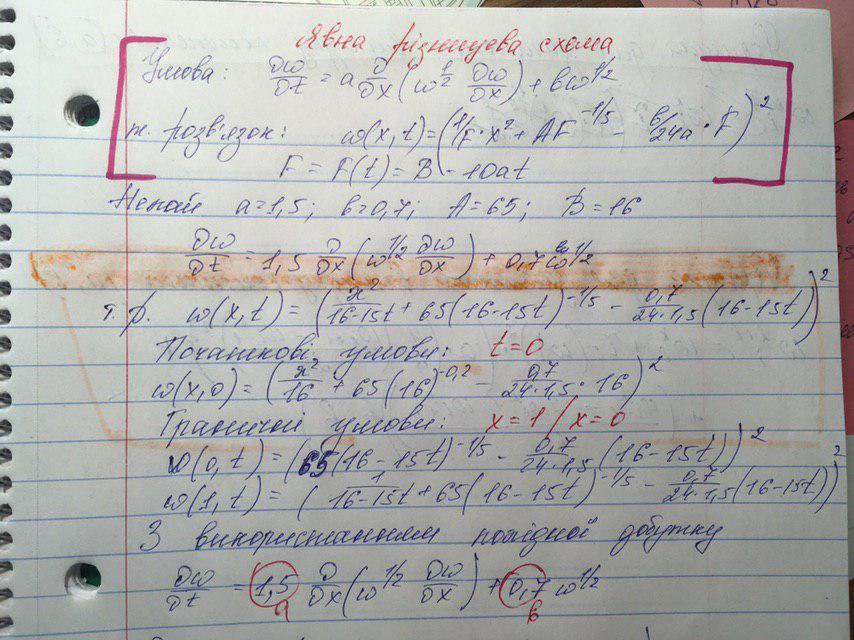 Явна різницева схема
Умова: ∂ω/∂t = a ∂/∂x (ω^1/2 ∂ω/∂x) + bω^1/2
т. розв'язок: ω(x,t) = (1/F · x² + AF^-1/5 - b/24a · F)²
F = F(t) = B - 10at
Нехай a=1,5; b=0,7; A=65; B=16
∂ω/∂t = 1,5 ∂/∂x (ω^1/2 ∂ω/∂x) + 0,7 ω^1/2
т. р. ω(x,t) = (x²/16-15t + 65(16-15t)^-1/5 - 0,7/24·1,5 (16-15t))²
Початкові умови: t=0
ω(x,0) = (x²/16 + 65(16)^-0,2 - 0,7/24·1,5 · 16)²
Граничні умови: x=1 / x=0
ω(0,t) = (65(16-15t)^-1/5 - 0,7/24·1,5 (16-15t))²
ω(1,t) = (1/16-15t + 65(16-15t)^-1/5 - 0,7/24·1,5 (16-15t))²
З використанням похідної добутку
∂ω/∂t = 1,5 ∂/∂x (ω^1/2 ∂ω/∂x) + 0,7 ω^1/2
a b